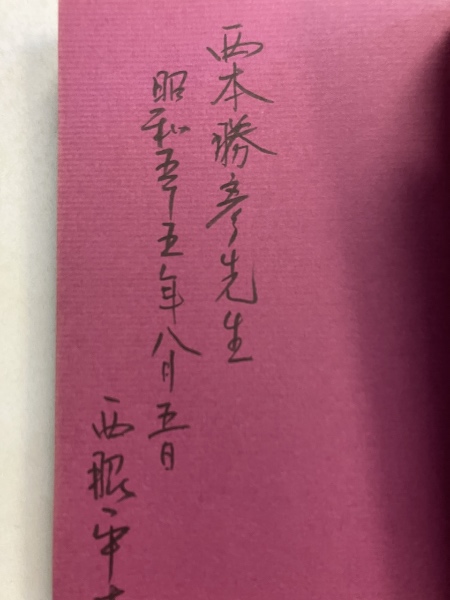 西本勝彦先生
昭和五十五年八月五日
西